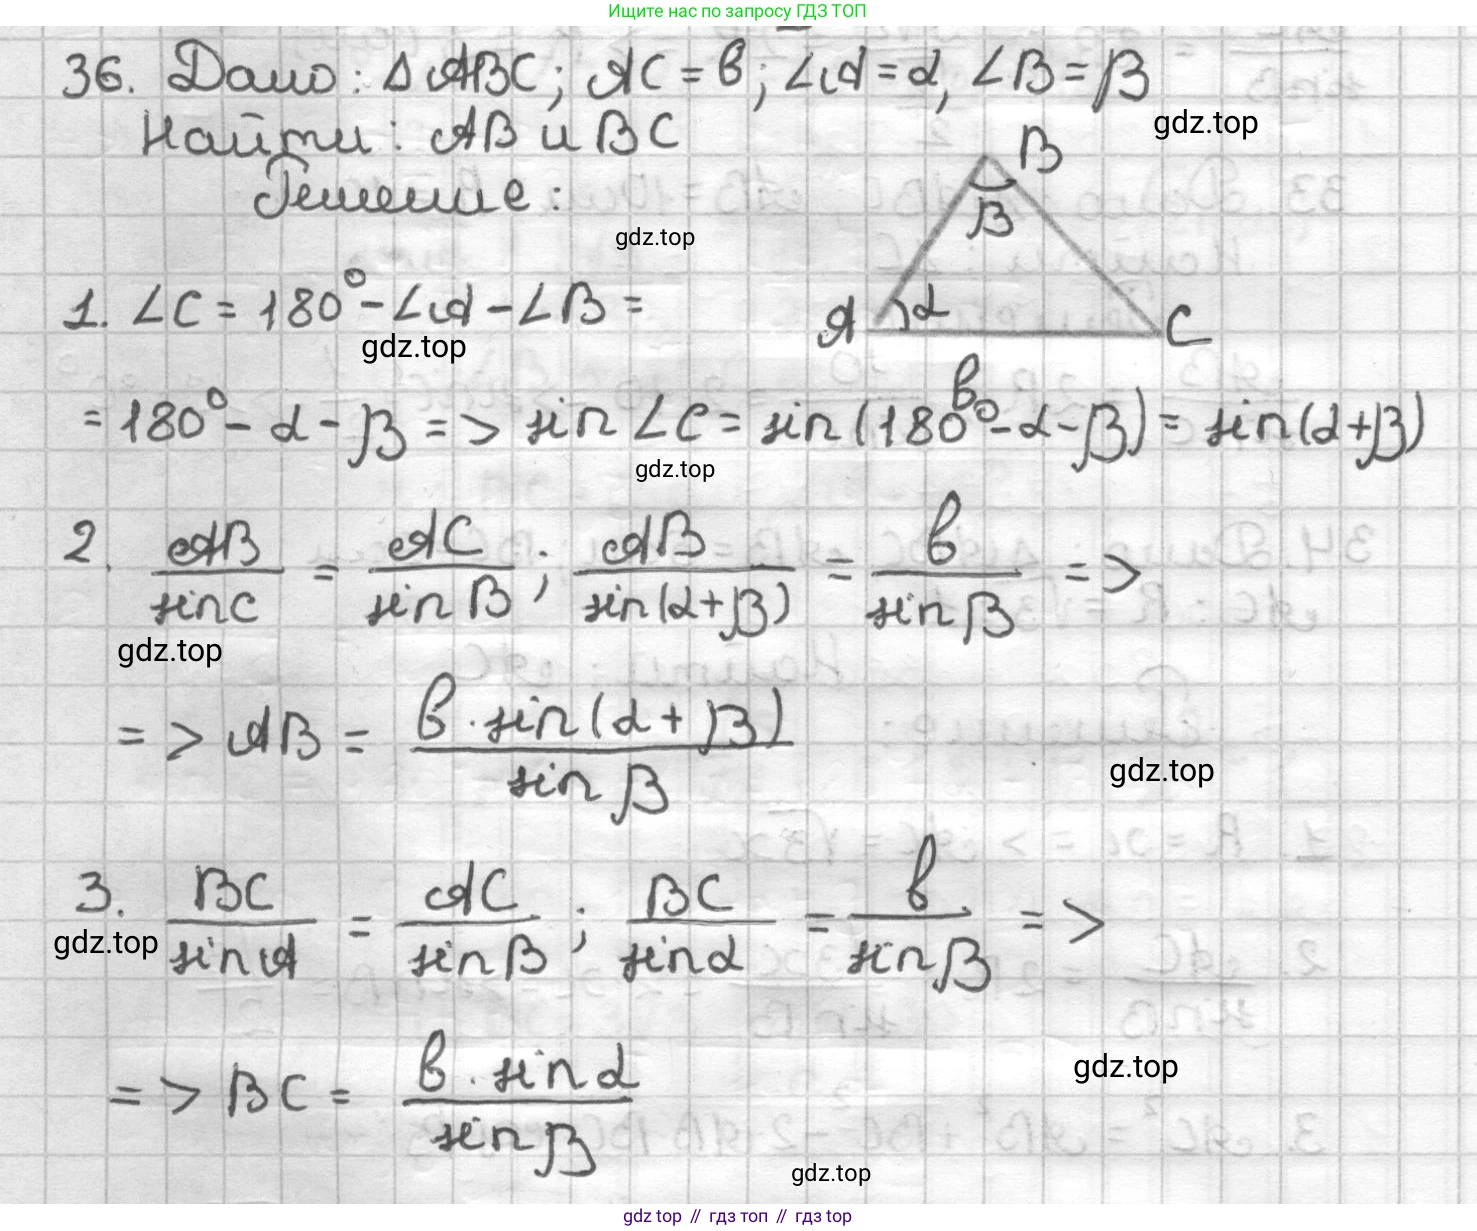 Ищите нас по запросу ГДЗ ТОП
36. Дано: Δ ABC; AC = b; ∠A = α, ∠B = β
gdz.top
Найти: AB и BC
B
Решение:
β
gdz.top
1. ∠C = 180° - ∠A - ∠B =
A α C
gdz.top
b
= 180° - α - β => sin ∠C = sin(180° - α - β) = sin(α + β)
gdz.top
2. AB/sin C = AC/sin B; AB/sin(α + β) = b/sin β =>
gdz.top
=> AB = b · sin(α + β)/sin β
gdz.top
3. BC/sin A = AC/sin B; BC/sin α = b/sin β =>
gdz.top
=> BC = b · sin α/sin β
gdz.top
gdz.top
gdz top // гдз топ // гдз top